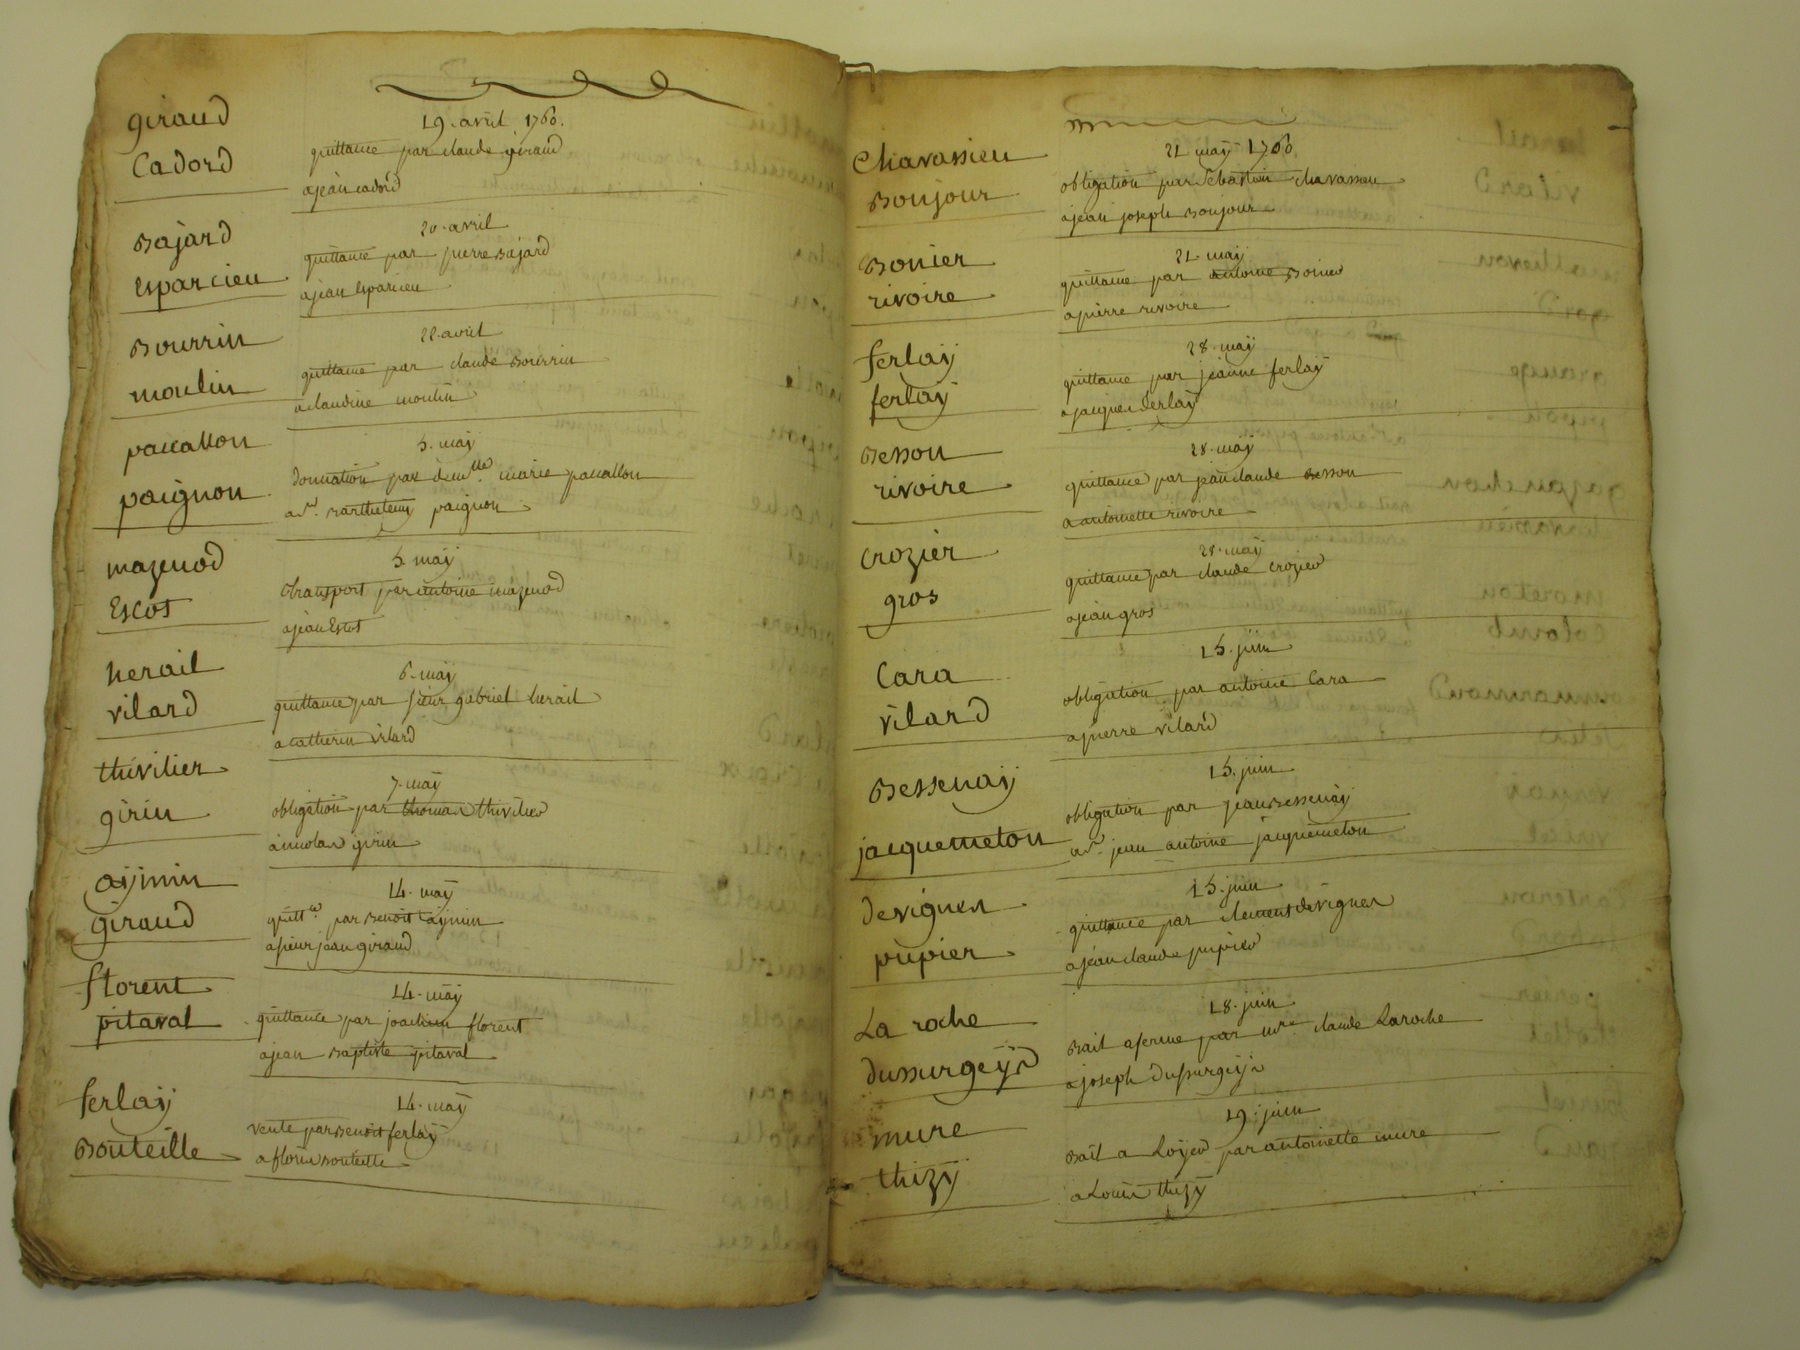 giraud
Cadord
19. avril 1760.
quittance par claude giraud
a jean cadord
Bajard
Esparcieu
20. avril
quittance par pierre Bajard
a jean Esparcieu
Bourrin
moulin
22. avril
quittance par claude Bourrin
a claudine moulin
pacallon
paignon
5. maÿ
donnation par demlle. marie pacallon
a sr. Barthelemy paignon
mazenod
Escot
5. maÿ
transport par antoine mazenod
a jean Escot
herail
vilard
6. maÿ
quittance par sieur gabriel herail
a catherin vilard
thivilier
girin
7. maÿ
obligation par thomas thivilier
a nicolas girin
aÿmin
giraud
14. maÿ
quittce. par Benoit aÿmin
a sieur jean giraud
florent
pitaval
14. maÿ
quittance par joachim florent
a jean Baptiste pitaval
ferlaÿ
Bouteille
14. maÿ
vente par Benoit ferlaÿ
a floris Bouteille
Chavassieu
Bonjour
21 maÿ 1760
obligation par sebastien chavassieu
a jean joseph Bonjour
Bonier
rivoire
21. maÿ
quittance par antoine Bonier
a pierre rivoire
ferlaÿ
ferlaÿ
28. maÿ
quittance par jeanne ferlaÿ
a jacques ferlaÿ
Besson
rivoire
28. maÿ
quittance par jean claude Besson
a antoinette rivoire
crozier
gros
28. maÿ
quittance par claude crozier
a jean gros
Cara
vilard
15. juin
obligation par antoine Cara
a pierre vilard
Bessenaÿ
jacquemeton
15. juin
obligation par jean Bessenaÿ
a sr. jean antoine jacquemeton
devignes
pupier
15. juin
quittance par clement devignes
a jean claude pupier
La roche
dussurgeÿs
18. juin
Bail a ferme par mre. claude Laroche
a joseph dussurgeÿs
mure
thizÿ
19. juin
Bail a Loÿer par antoinette mure
a Louis thizÿ